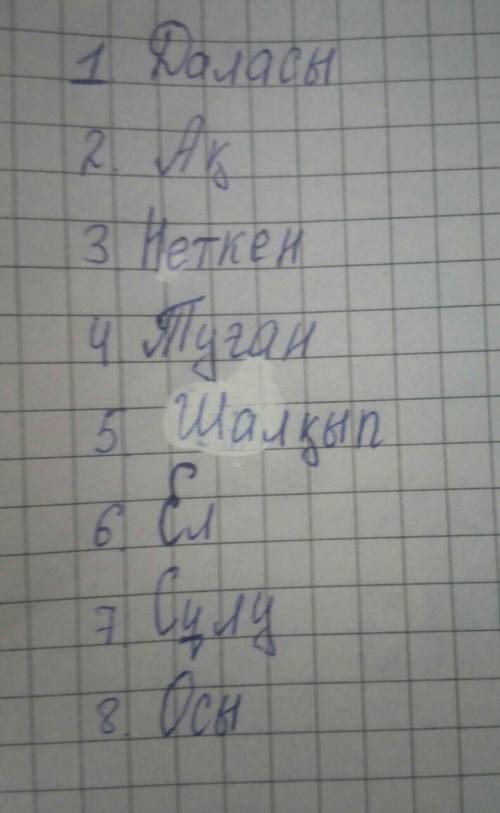 1 Даласы
2. Ақ
3 Неткен
4 Туған
5 Шалқып
6. Ел
7. Сұлу
8. Осы